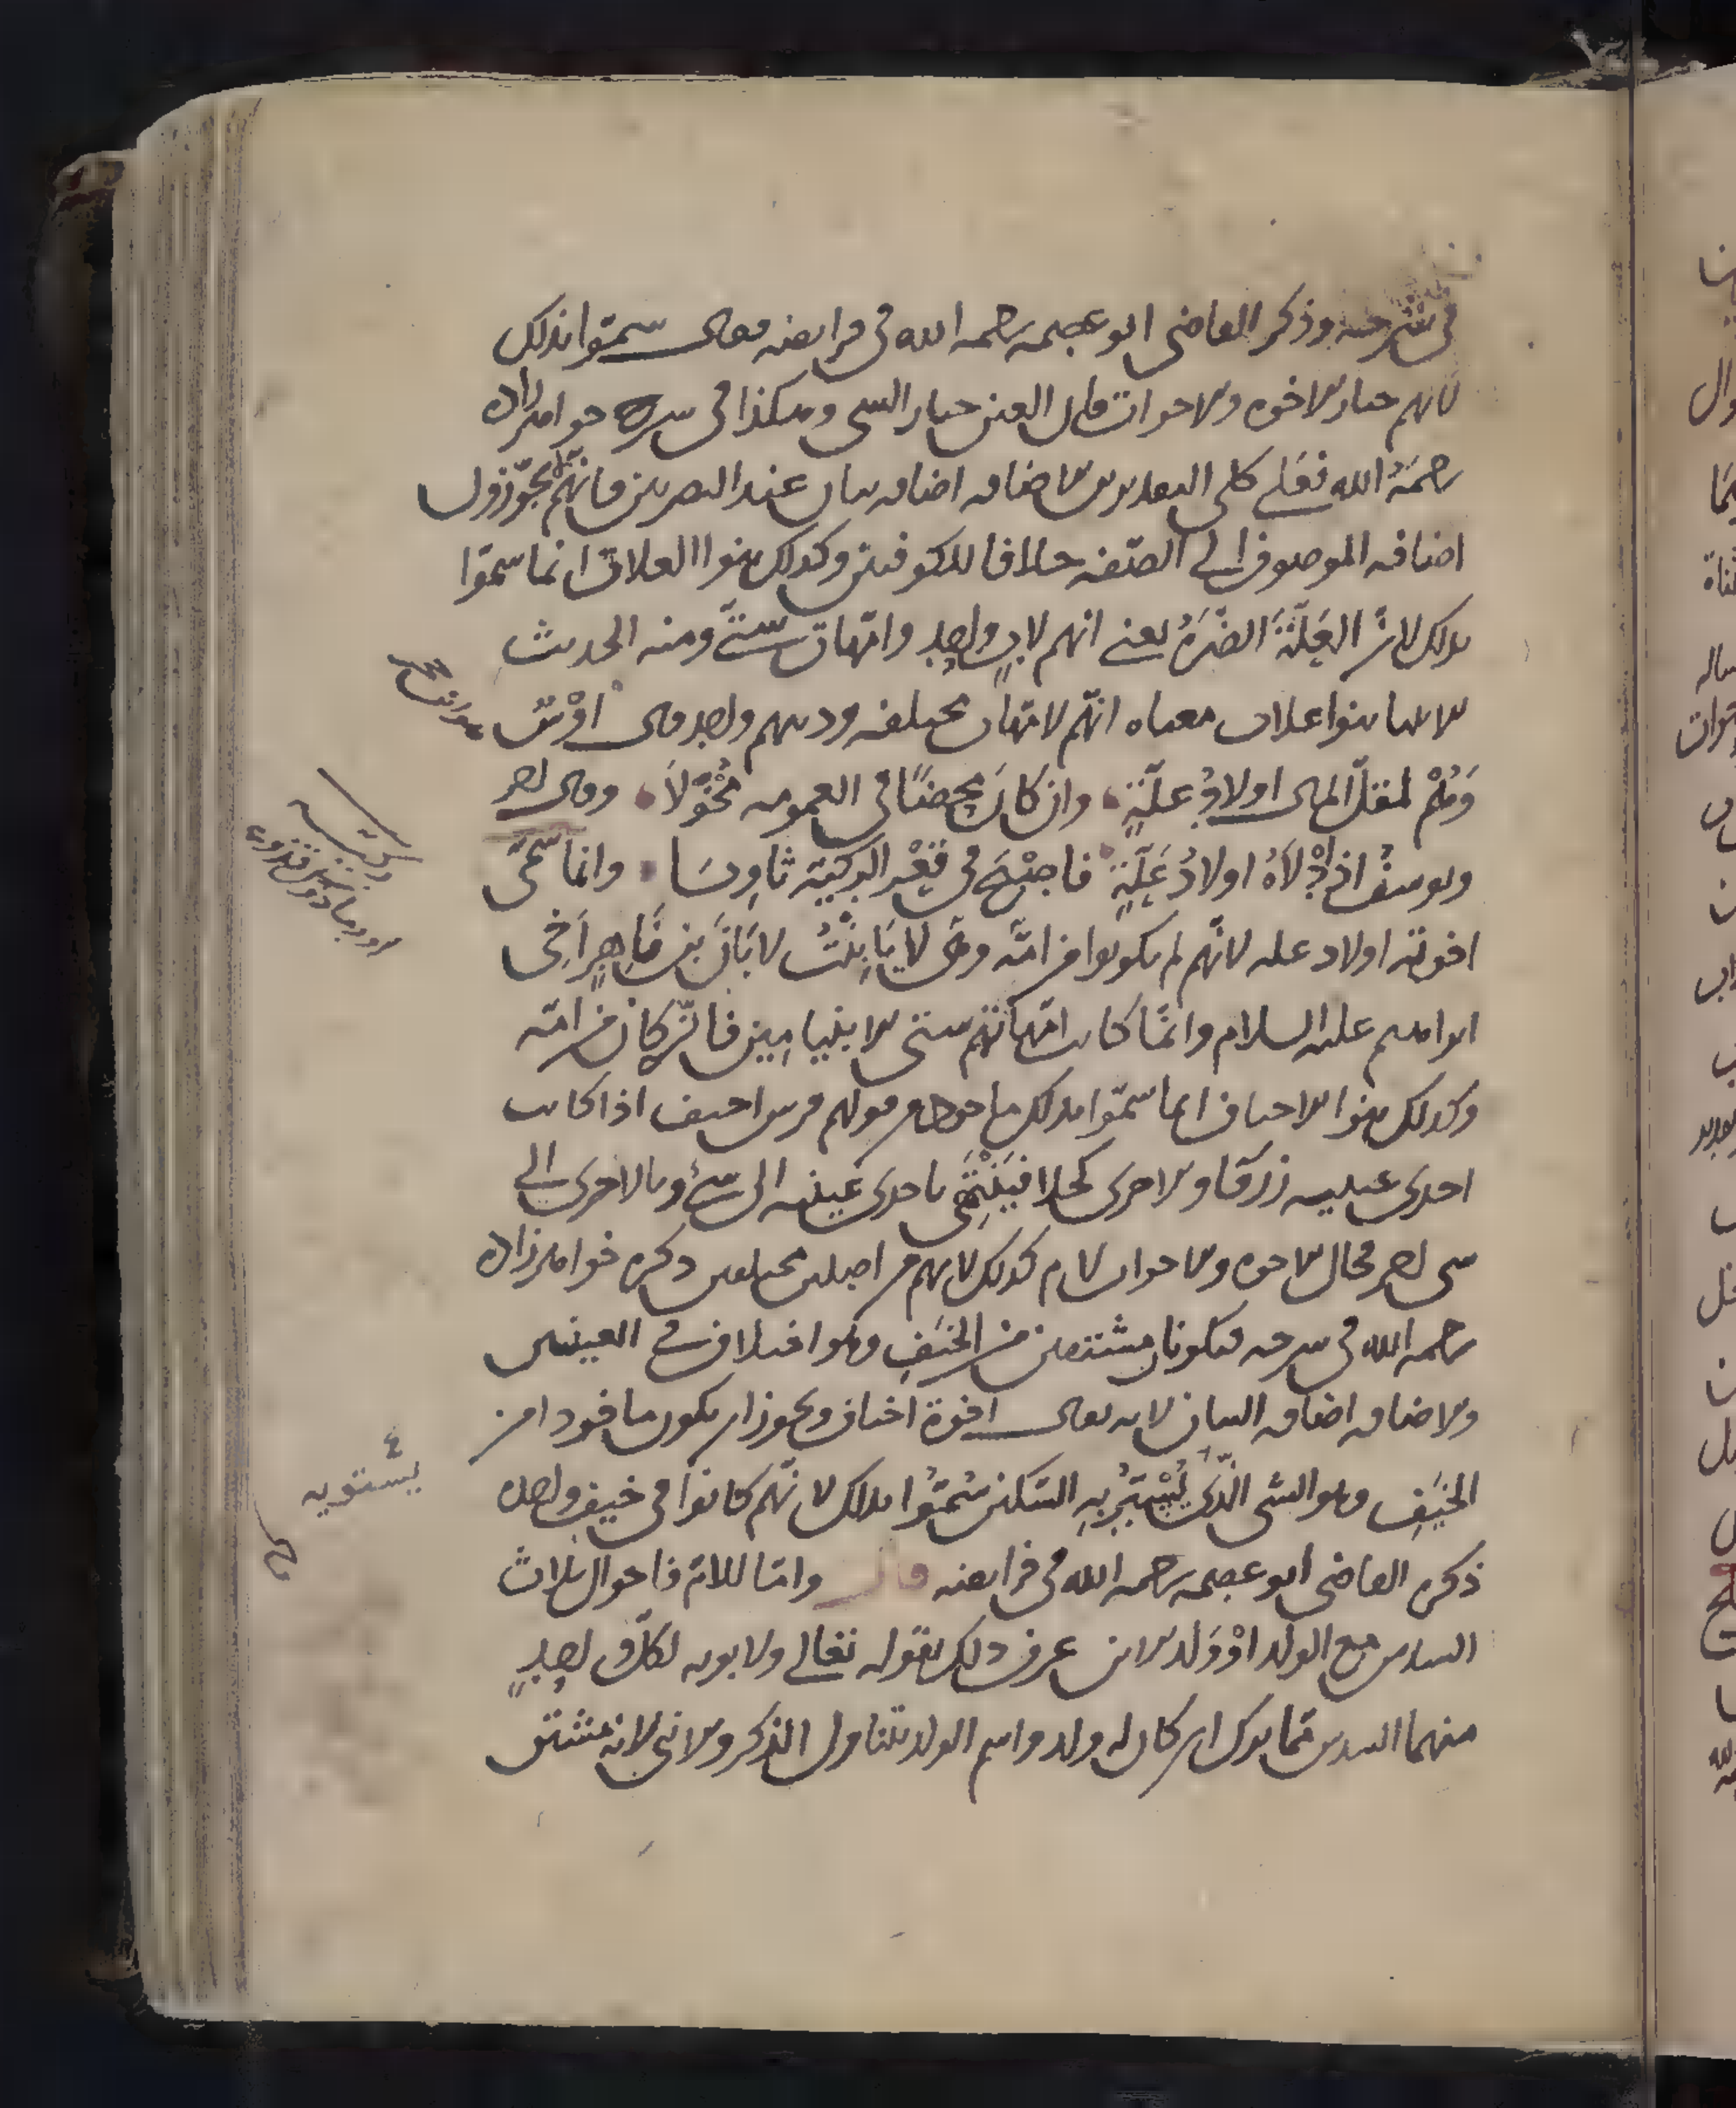 في شرحه وذكر القاضي ابو عصمه رحمه الله في فرايضه فقال سمّوا بذلك
لانهم خيار الاخوه والاخوات فان العين خيار الشي وهكذا في شرح خواهرزاده
رحمة الله فعلى كلى التقديرين الاضافه اضافه بيان عند البصريين فانهم لا يجوّزون
اضافه الموصوف الى الصّفه خلافا للكوفيين وكذلك بنوا العلات انما سمّوا
بذلك لانّ العَلّةَ الضّرةُ يعني انهم لابٍ واحِدٍ وامّهات ستّي ومنه الحديث
الانبيا بنوا علات معناه انهّم لامّهات مختلفه ودينهم واحد قال اوْس
وَهُمْ لمقلّ المال اولادُ علّةٍ وان كانَ محضًا في العمومه مُخْوَلاَ وقال اخر
ويوسفُ اذ دلاّهُ اولادُ عَلّةٍ فاصْبَحَ في قَعْرِ الركيّة ثاوِيَا وانما سمّى
اخوته اولاد عله لانّهم لم يكونوا من امّه وهى لايَا بِنْتُ لابَانَ بن نَاهِرٍ اَخى
ابراهيم عليه السلام وانمّا كانت امّهاتهم ستى الا بنيامِين فانّه كان من امّه
وكذلك بنوا الاخياف انما سمّوا بذلك ماخوذ من قولهم فرس اخيف اذا كانت
احدى عينيه زرقا والاخرى كحلا فيَنْتَمِى باحدى عينيه الى شئ وبالاخرى الى
شى اخر فحال الاخوه والاخوات لام كذلك لانهم من اصلين مختلفين ذكره خواهرزاده
رحمه الله في شرحه فيكونان مشتقين من الخيَفِ وهو اختلاف في العينين
والاضافه اضافه البيان لانه يقال اخوة اخياف ويجوز ان يكون ماخوذا من
الخيَفِ وهو الشى الّذى يُسْتَرُ بِهِ السّكين سُمّوُا بذلك لانّهم كانوا في خيف واحده
ذكره القاضى ابو عصمه رحمه الله في فرايضه قال وامّا للامّ فاحوال ثلاث
السدس مع الولد اوْ وَلد الابن عرف ذلك بقوله تعالى ولابويه لكلّ واحِدٍ
منهما السدس ممّا ترك ان كان له ولد واسم الولد يتناول الذكر والانثى لانه مشتق
يستوبه